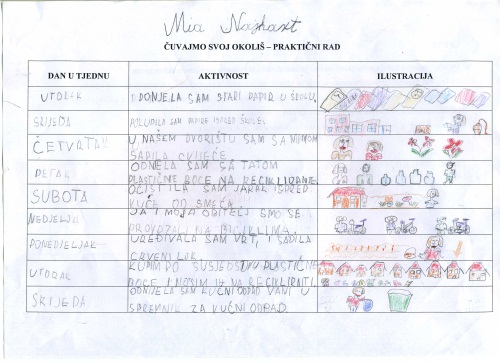 Mia
ČUVAJMO SVOJ OKOLIŠ – PRAKTIČNI RAD
DAN U TJEDNU AKTIVNOST ILUSTRACIJA
UTORAK DONJELA SAM STARI PAPIR U ŠKOLU.
SRIJEDA SAM PAPIRE ISPRED ŠKOLE.
ČETVRTAK U NAŠEM DVORIŠTU SAM SA MAMOM
SADILA CVIJEĆE.
PETAK ODNJELA SAM SA TATOM
PLASTIČNE BOCE NA RECIKLIRANJE.
SUBOTA OČISTILA SAM JARAK ISPRED
KUĆE OD SMEĆA.
NEDJELJA JA I MOJA OBITELJ SMO SE
PROVOZALI NA BICIKLIMA.
PONEDJELJAK UREĐIVALA SAM VRT, I SADILA
CRVENI LUK.
UTORAK KUPIM PO SUSJEDSTVU PLASTIČNE
BOCE I NOSIM IH NA RECIKLIRATI.
SRIJEDA ODNJELA SAM KUĆNI ODPAD VANI U
SPREMNIK ZA KUĆNI ODPAD.